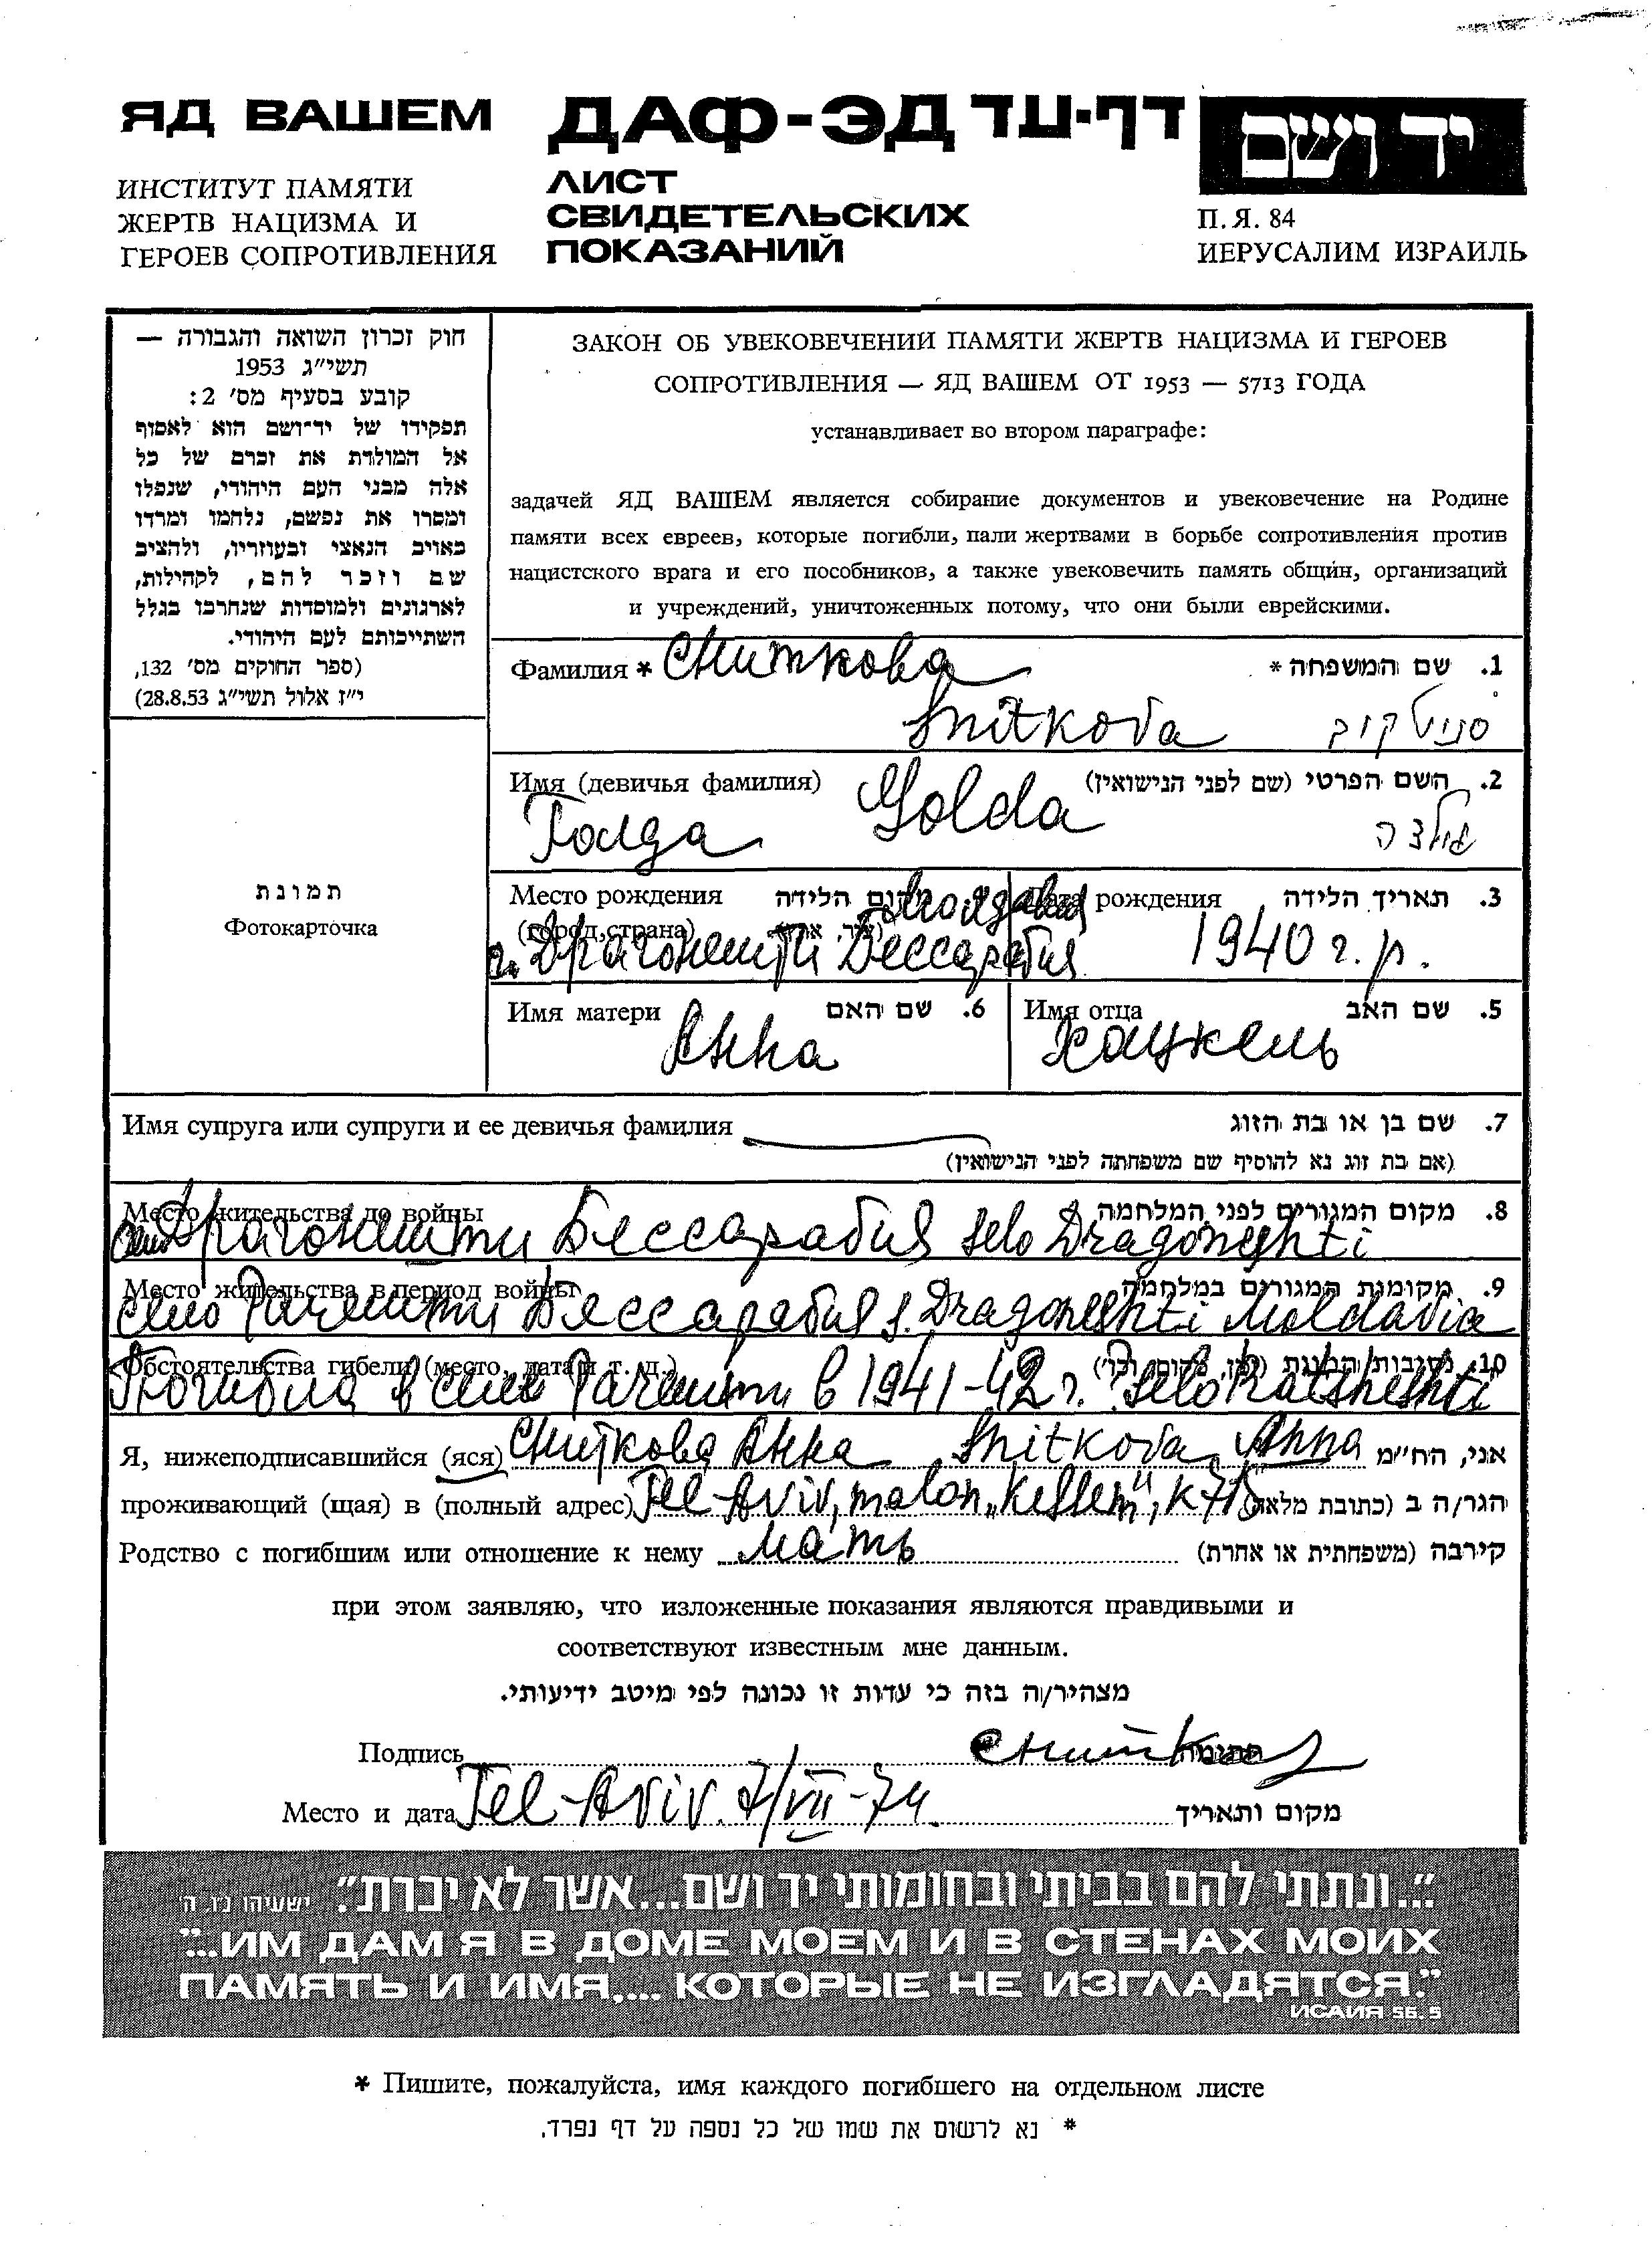 ЯД ВАШЕМ
ИНСТИТУТ ПАМЯТИ
ЖЕРТВ НАЦИЗМА И
ГЕРОЕВ СОПРОТИВЛЕНИЯ
ДАФ-ЭД דף-עד
ЛИСТ
СВИДЕТЕЛЬСКИХ
ПОКАЗАНИЙ
יד ושם
П. Я. 84
ИЕРУСАЛИМ ИЗРАИЛЬ
חוק זכרון השואה והגבורה —
תשי״ג 1953
קובע בסעיף מס׳ 2:
תפקידו של יד־ושם הוא לאסוף
אל המולדת את זכרם של כל
אלה מבני העם היהודי, שנפלו
ומסרו את נפשם, נלחמו ומרדו
באויב הנאצי ובעוזריו, ולהציב
שם וזכר להם, לקהילות,
לארגונים ולמוסדות שנחרבו בגלל
השתייכותם לעם היהודי.
(ספר החוקים מס׳ 132,
י״ז אלול תשי״ג 28.8.53)
תמונת
Фотокарточка
ЗАКОН ОБ УВЕКОВЕЧЕНИЙ ПАМЯТИ ЖЕРТВ НАЦИЗМА И ГЕРОЕВ
СОПРОТИВЛЕНИЯ — ЯД ВАШЕМ ОТ 1953 — 5713 ГОДА
устанавливает во втором параграфе:
задачей ЯД ВАШЕМ является собирание документов и увековечение на Родине
памяти всех евреев, которые погибли, пали жертвами в борьбе сопротивления против
нацистского врага и его пособников, а также увековечить память общин, организаций
и учреждений, уничтоженных потому, что они были еврейскими.
Фамилия * Сниткова 1. שם המשפחה *
Snitkova סניטקוב
Имя (девичья фамилия) Golda 2. השם הפרטי (שם לפני הנישואין)
Голда גולדה
Место рождения מקום הלידה Дата рождения 3. תאריך הלידה
(город, страна)
Драгонешти Бессарабия 1940 г. р.
Имя матери 6. שם האם Имя отца 5. שם האב
Анна Хацкель
Имя супруга или супруги и ее девичья фамилия 7. שם בן או בת הזוג
(אם בת זוג נא להוסיף שם משפחתה לפני הנישואין)
Место жительства до войны 8. מקום המגורים לפני המלחמה
село Драгонешти Бессарабия selo Dragoneshti
Место жительства в период войны 9. מקומות המגורים במלחמה
село Рачешти Бессарабия s. Dragoneshti Moldavia
Обстоятельства гибели (место, дата и т. д.) 10. נסיבות המות (זמן, מקום, וכו׳)
Погибла в селе Рачешти в 1941-42 г. selo Ratsheshti
Я, нижеподписавшийся (яся) Сниткова Анна Snitkova Anna אני, הח״מ
проживающий (щая) в (полный адрес) Tel-Aviv, malon „Kellem", к 715 הגר/ה ב (כתובת מלאה)
Родство с погибшим или отношение к нему мать קירבה (משפחתית או אחרת)
при этом заявляю, что изложенные показания являются правдивыми и
соответствуют известным мне данным.
מצהיר/ה בזה כי עדות זו נכונה לפי מיטב ידיעותי.
Подпись חתימה
Место и дата Tel-Aviv. 7/VII-74. מקום ותאריך
״..ונתתי להם בביתי ובחומותי יד ושם...אשר לא יכרת״. ישעיהו נ״ו, ה׳
"...ИМ ДАМ Я В ДОМЕ МОЕМ И В СТЕНАХ МОИХ
ПАМЯТЬ И ИМЯ.... КОТОРЫЕ НЕ ИЗГЛАДЯТСЯ."
ИСАИЯ 56. 5
* Пишите, пожалуйста, имя каждого погибшего на отдельном листе
* נא לרשום את שמו של כל נספה על דף נפרד.